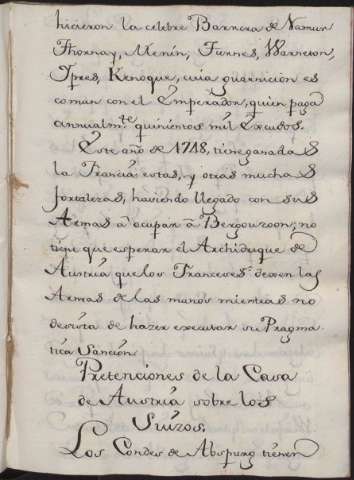 hicieron la celebre Barrera de Namur
Thornay, Menin, Furnes, Warneton,
Ypres, Kenoque, cuia guarnicion es
comun con el Emperador, quien paga
annualm.te quinientos mil Excudos.
Este año de 1748, tiene ganadas
la Francia estas, y otras muchas
fortalezas, haviendo llegado con sus
Armas â ocupar â Bergouzoon; no
tiene que esperar el Archiduque de
Austria que los Franceses dexen las
Armas de las manos mientras no
desista de hazer executar su Pragma
tica Sancion.
Pretenciones de la Casa
de Austria sobre los
Suizos.
Los Condes de Abspurg tienen